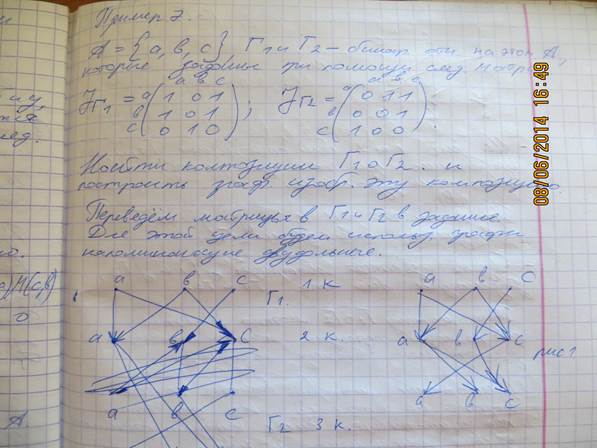 Пример 2.
A = {a, b, c}, Г1 и Г2 – бинар. отн. на этом A,
которые заданы при помощи след. матриц
a b c
a b c
J Г1 = a ( 1 0 1 ) ; J Г2 = a ( 0 1 1 ) .
b 1 0 1
b 0 0 1
c 0 1 0
c 1 0 0
Найти композиции Г1 o Г2 и
построить граф. изобр. эту композицию.
Переведём матрицы в Г1 и Г2 в задание
Для этой цели будем использ. графы
напоминающие двудольные.
a b c Г1. 1 к a b c
a b c 2 к. a b c рис 1
a b c Г2 3 к. a b c
08/06/2014 16:49